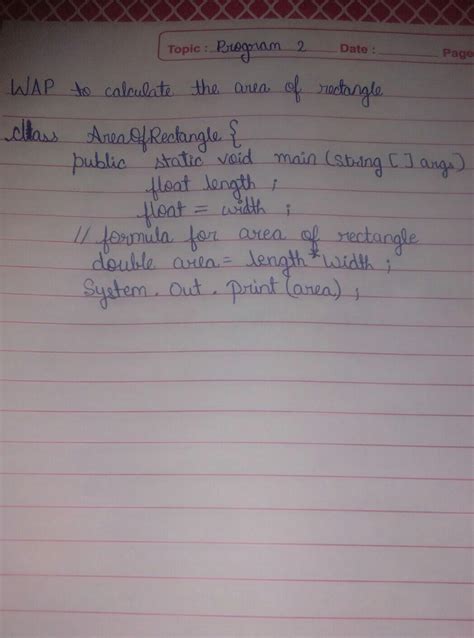 Topic : Program 2 Date : Page
WAP to calculate the area of rectangle
class AreaOfRectangle {
public static void main (String [ ] args)
float length ;
float = width ;
// formula for area of rectangle
double area = length * width ;
System . out . print (area) ;